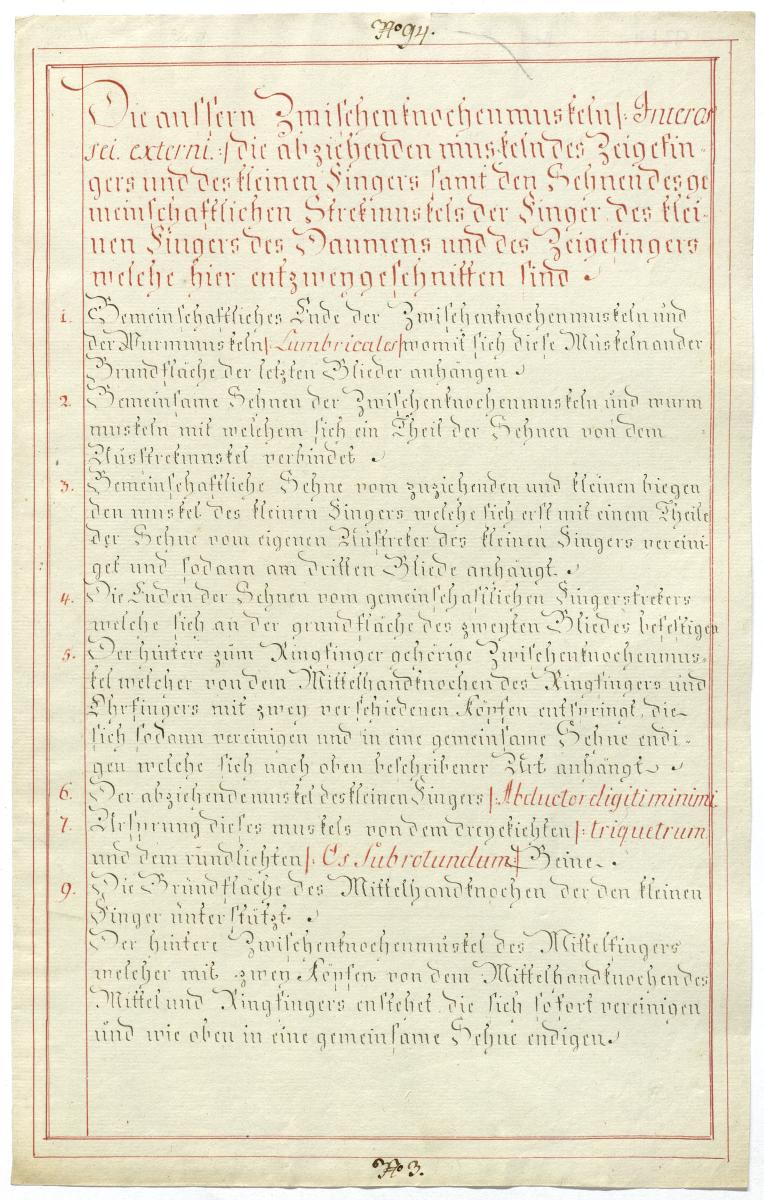 No 94.
Die aussern Zwischenknochenmuskeln /: Interos
sei. externi. :/ die abziehenden muskeln des Zeigefin-
gers und des kleinen Fingers samt den Sehnen des ge
meinschaftlichen Strekmuskels der Finger, des klei-
nen Fingers des Daumens und des Zeigefingers
welche hier entzweygeschnitten sind.
1. Gemeinschaftliches Ende der Zwischenknochenmuskeln und
der Wurmmuskeln /: Lumbricales / womit sich diese Muskeln an der
Grundfläche der letzten Glieder anhängen.
2. Gemeinsame Sehnen der Zwischenknochenmuskeln und wurm
muskeln mit welchem sich ein Theil der Sehnen von dem
Ausstrekmuskel verbindet.
3. Gemeinschaftliche Sehne vom zuziehenden und kleinen biegen
den muskel des kleinen Fingers welche sich erst mit einem Theile
der Sehne vom eigenen Austreker des kleinen Fingers vereini-
get und sodann am dritten Gliede anhängt.
4. Die Enden der Sehnen vom gemeinschaftlichen Fingerstrekers
welche sich an der grundfläche des zweyten Gliedes befestigen
5. Der hintere zum Ringfinger gehörige Zwischenknochenmus-
kel welcher von dem Mittelhandknochen des Ringfingers und
Ohrfingers mit zwey verschiedenen Köpfen entspringt, die
sich sodann vereinigen und in eine gemeinsame Sehne endi-
gen welche sich nach oben beschribener Art anhängt.
6. Der abziehende muskel des kleinen Fingers /: Abductor digiti minimi.
7. Ursprung dieses muskels von dem dreyekichten /: triquetrum
und dem rundlichten /: Os Subrotundum :/ Beine.
9. Die Grundfläche des Mittelhandknochen der den kleinen
Finger unterstützt.
Der hintere Zwischenknochenmuskel des Mittelfingers
welcher mit zwey Köpfen von dem Mittelhandknochen des
Mittel und Ringfingers enstehet, die sich sofort vereinigen
und wie oben in eine gemeinsame Sehne endigen.
No 3.